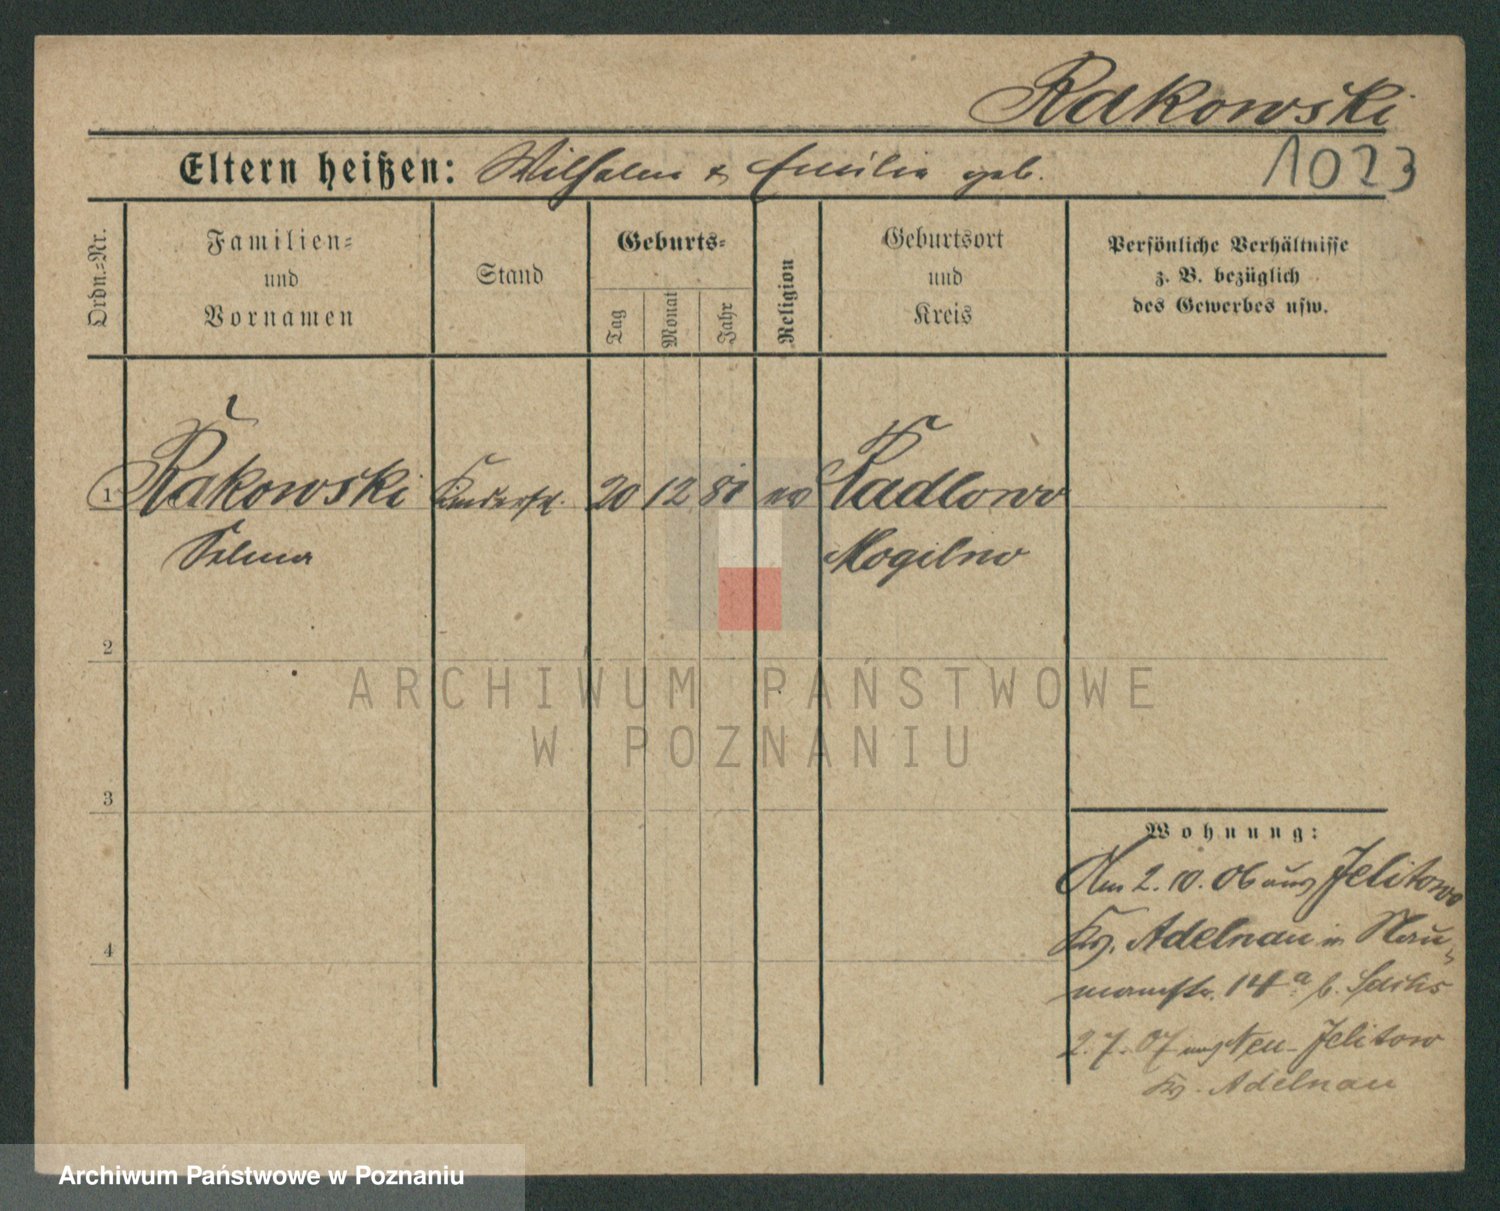 Rakowski
Eltern heißen: Wilhelm & Emilie geb.
1023
Ordn.=Nr.
Familien=
und
Vornamen
Stand
Geburts=
Tag
Monat
Jahr
Religion
Geburtsort
und
Kreis
Persönliche Verhältnisse
z. B. bezüglich
des Gewerbes usw.
1 Rakowski Kinderfrl. 20 12 81 ev Radlowo
Selma Mogilno
2
3
4
Wohnung:
Am 2. 10. 06 aus Jelitowo
Krs. Adelnau in Nau-
mannstr. 14a b.
2. 7. 07 nach Neu-Jelitow
Krs. Adelnau
ARCHIWUM PAŃSTWOWE
W POZNANIU
Archiwum Państwowe w Poznaniu